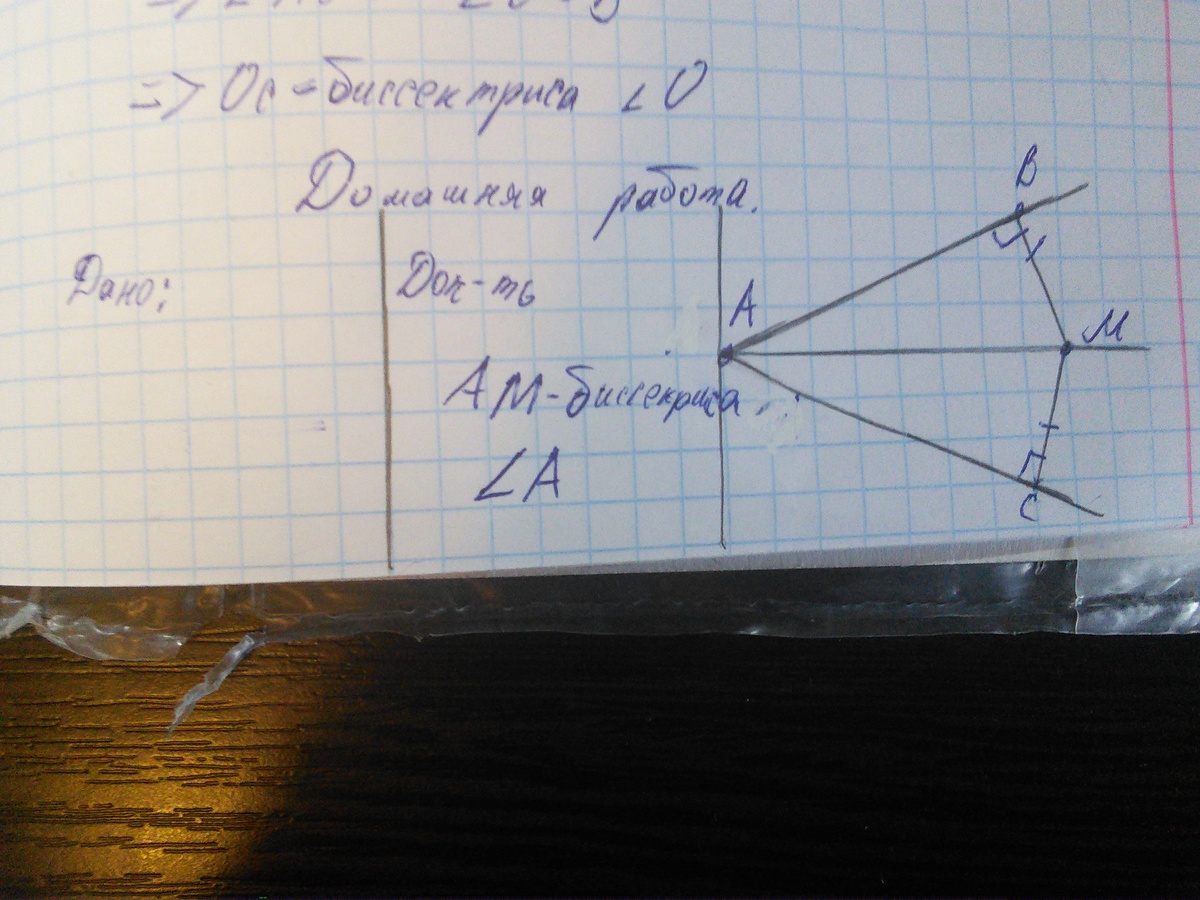 => Ос - биссектриса ∠ O
Домашняя работа.
Дано:
Док-ть
AM - биссекриса
∠A
A
B
M
C